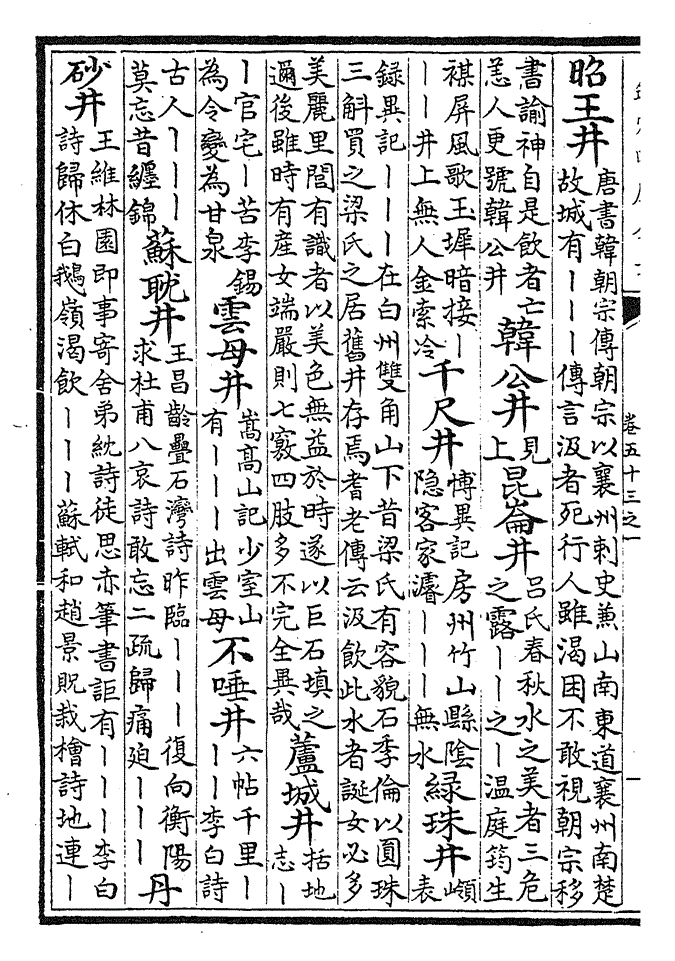 昭王井
唐書韓朝宗傳朝宗以襄州刺史兼山南東道襄州南楚
故城有丨丨丨傳言汲者死行人雖渴困不敢視朝宗移
書諭神自是飲者亡
恙人更號韓公井
韓公井
見
上
崑崙井
吕氏春秋水之美者三危
之露丨丨之丨温庭筠生
禖屏風歌玉墀暗接丨
丨丨井上無人金索冷
千尺井
博異記房州竹山縣陰
隠客家濬丨丨丨無水
緑珠井
嶺
表
録異記丨丨丨在白州雙角山下昔梁氏有容貌石季倫以圓珠
三斛買之梁氏之居舊井存焉耆老傳云汲飲此水者誕女必多
美麗里閭有識者以美色無益於時遂以巨石填之
邇後雖時有産女端嚴則七竅四肢多不完全異哉
蘆城井
括地
志丨
丨官宅丨苦李錫
為令變為甘泉
雲母井
嵩髙山記少室山
有丨丨丨出雲母
不唾井
六帖千里丨
丨丨李白詩
古人丨丨丨丨
莫忘昔纒錦
蘇耽井
王昌齡疊石灣詩昨臨丨丨丨復向衡陽
求杜甫八哀詩敢忘二疏歸痛廹丨丨丨
丹
砂井
王維林園即事寄舍弟紞詩徒思赤筆書詎有丨丨丨李白
詩歸休白鵝嶺渴飲丨丨丨蘇軾和趙景貺栽檜詩地連丨
卷五十三之一